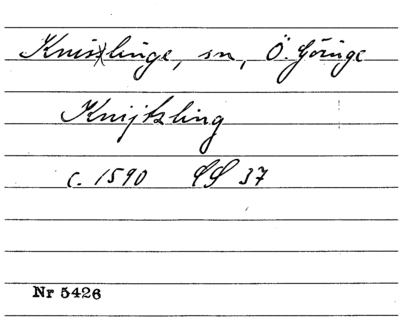 Knislinge, sn, Ö. Göinge
Knijtzling
c. 1590 LS 37
Nr 5426